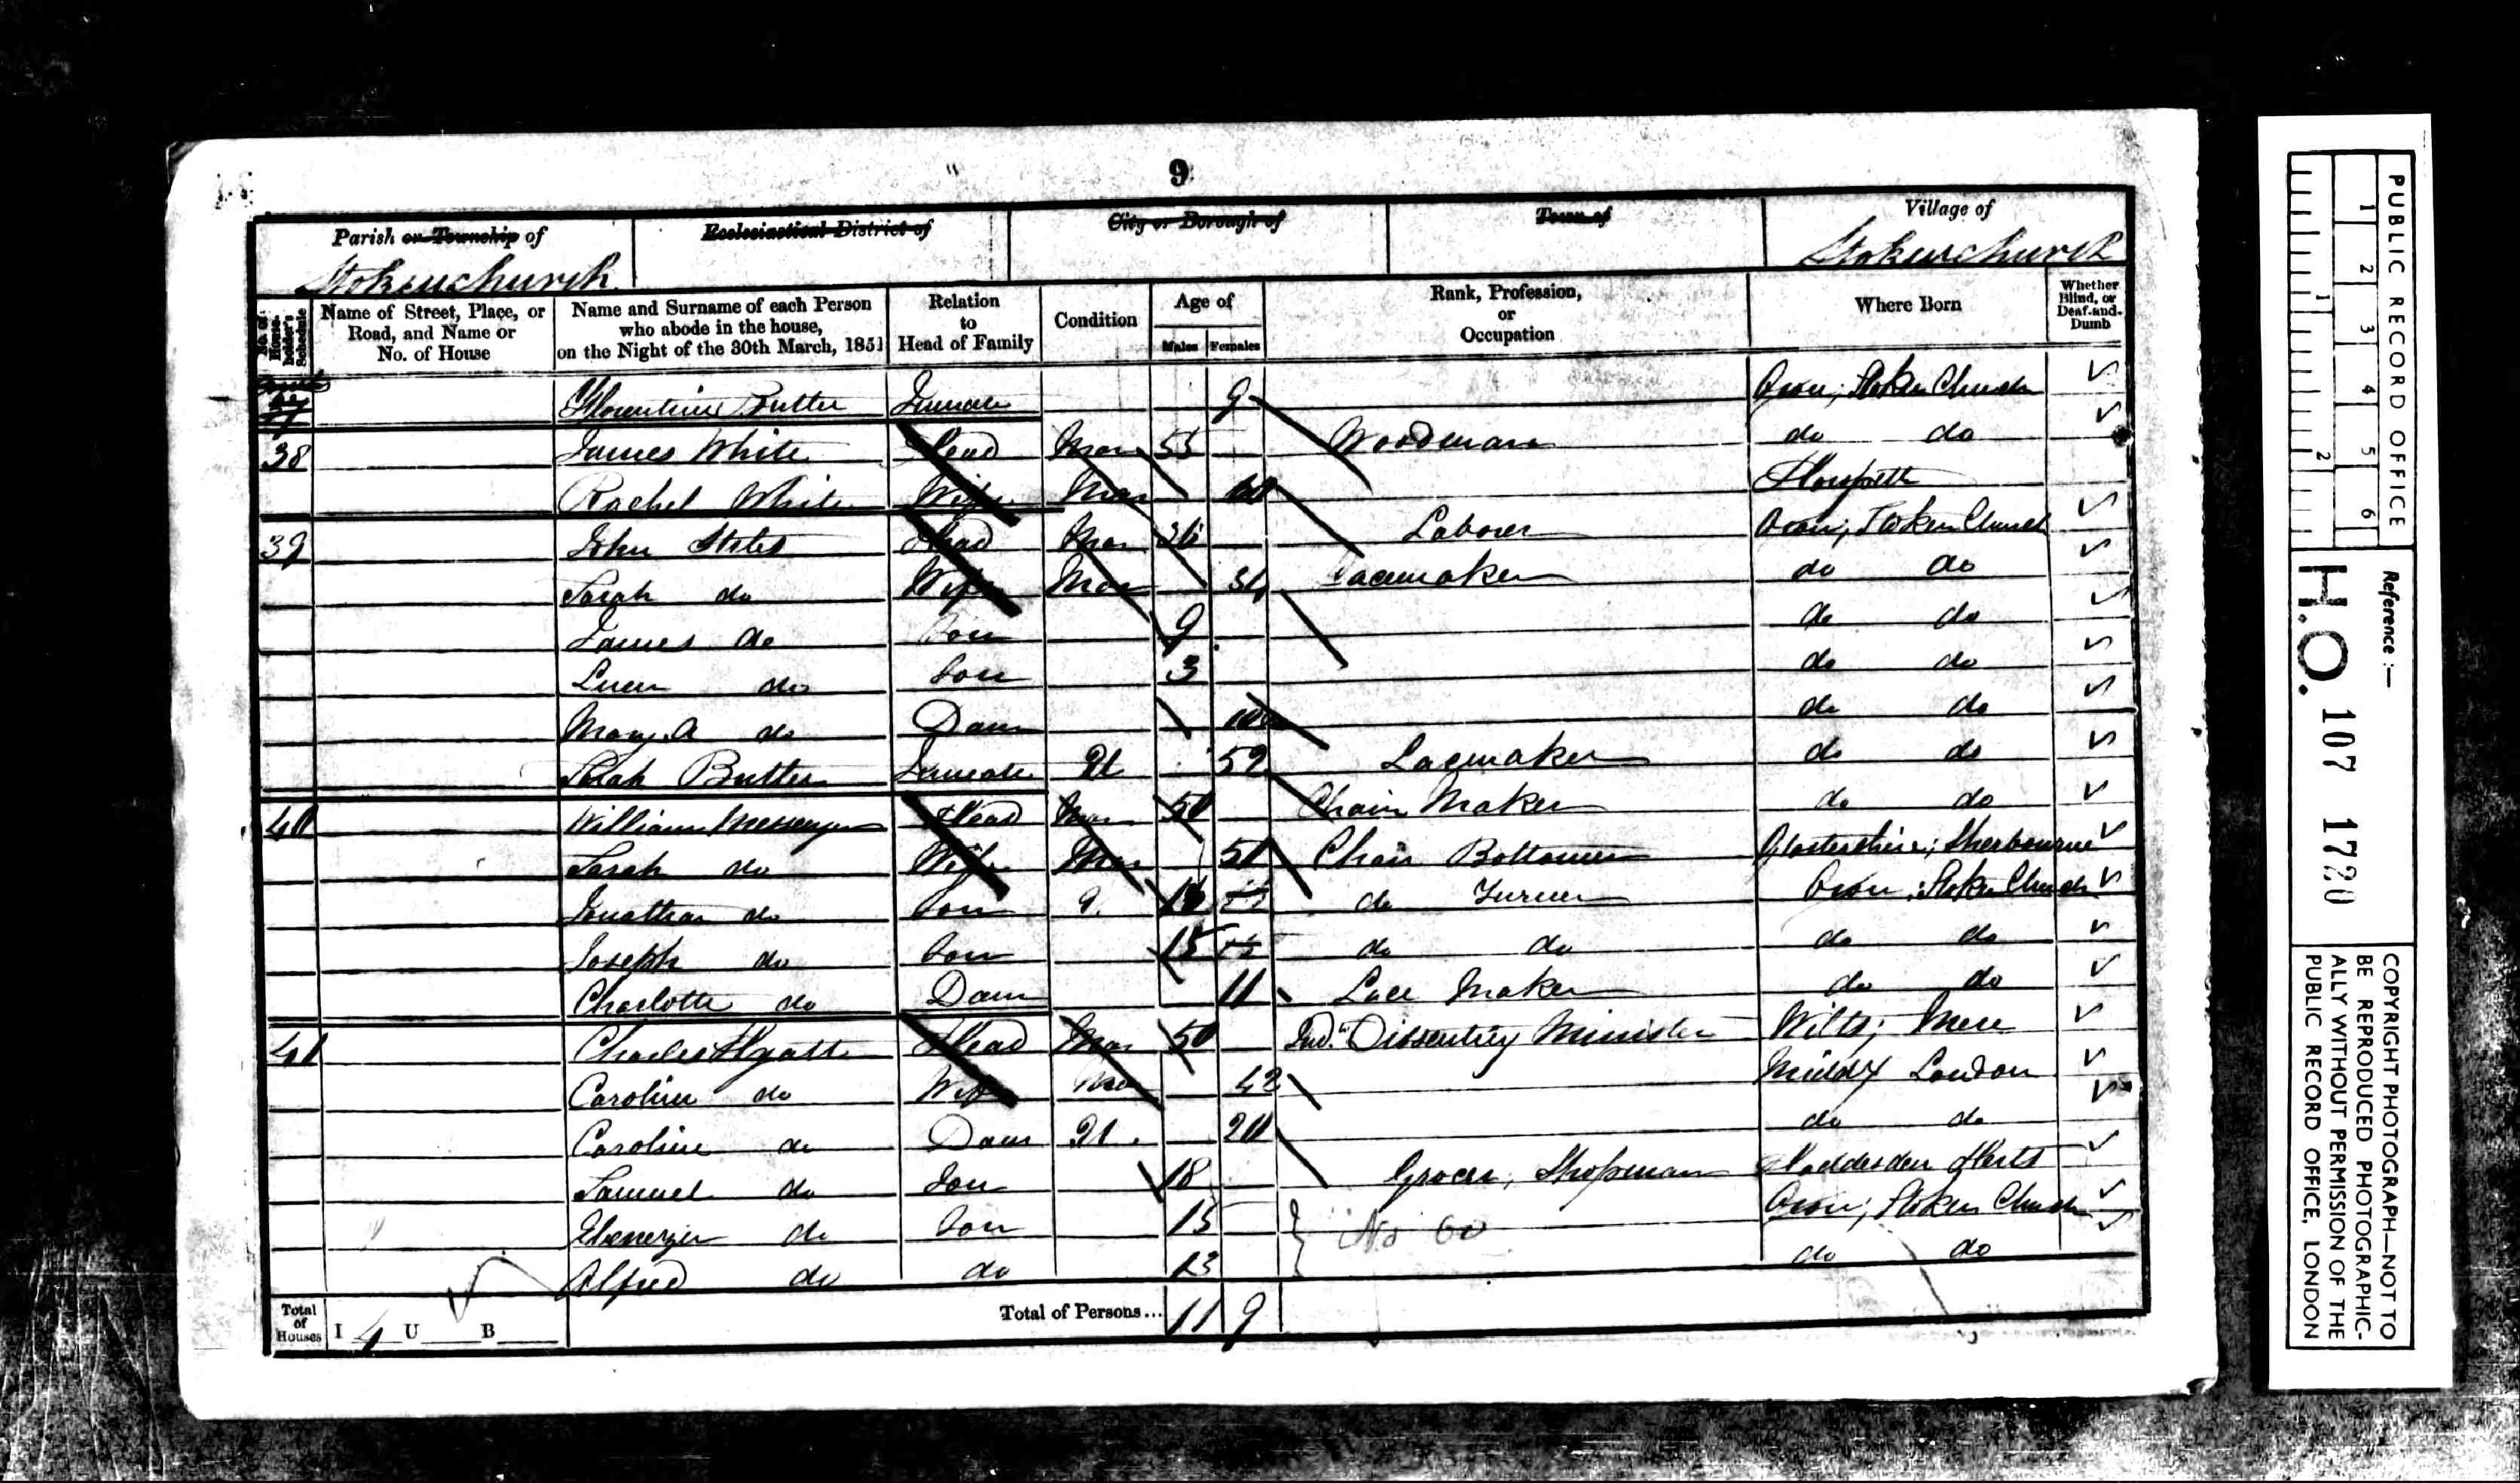 9
Parish or Township of
Ecclesiastical District of
City or Borough of
Town of
Village of
Stokenchurch
Stokenchurch
No. of House-holder's Schedule
Name of Street, Place, or Road, and Name or No. of House
Name and Surname of each Person who abode in the house, on the Night of the 30th March, 1851
Relation to Head of Family
Condition
Age of
Males
Females
Rank, Profession, or Occupation
Where Born
Whether Blind, or Deaf-and-Dumb
Butler Inmate 9 Oxon; Stoken Church
38 James White Head Mar 55 Woodman do do
Rachel White Wife Mar
39 John Head Mar 36 Laborer Oxon; Stoken Church
Sarah do Wife Mar 34 Lacemaker do do
James do Son 9 do do
do Son 3 do do
Mary A do Daur do do
Sarah Butler Inmate U 52 Lacemaker do do
40 William Messenger Head Mar 50 Chair Maker do do
Sarah do Wife Mar 50 Chair Bottomer Glostershire; Sherbourne
Jonathan do Son do Turner Oxon; Stoken Church
Joseph do Son 15 15 do do do do
Charlotte do Daur 11 Lace Maker do do
41 Charles Hyatt Head Mar 50 Ind. Dissenting Minister Wilts; Mere
Caroline do Wife Mar 42 Middx London
Caroline do Daur U 20 do do
Samuel do Son 18 Grocer, Shopman Hoddesden Herts
Ebenezer do Son 15 Oxon; Stoken Church
Alfred do do 13 do do
Total of Houses I 4 U B Total of Persons... 11 9
PUBLIC RECORD OFFICE
1 2 3 4 5 6
1 2
Reference :-
H.O. 107 1720
COPYRIGHT PHOTOGRAPH—NOT TO
BE REPRODUCED PHOTOGRAPHIC-
ALLY WITHOUT PERMISSION OF THE
PUBLIC RECORD OFFICE, LONDON